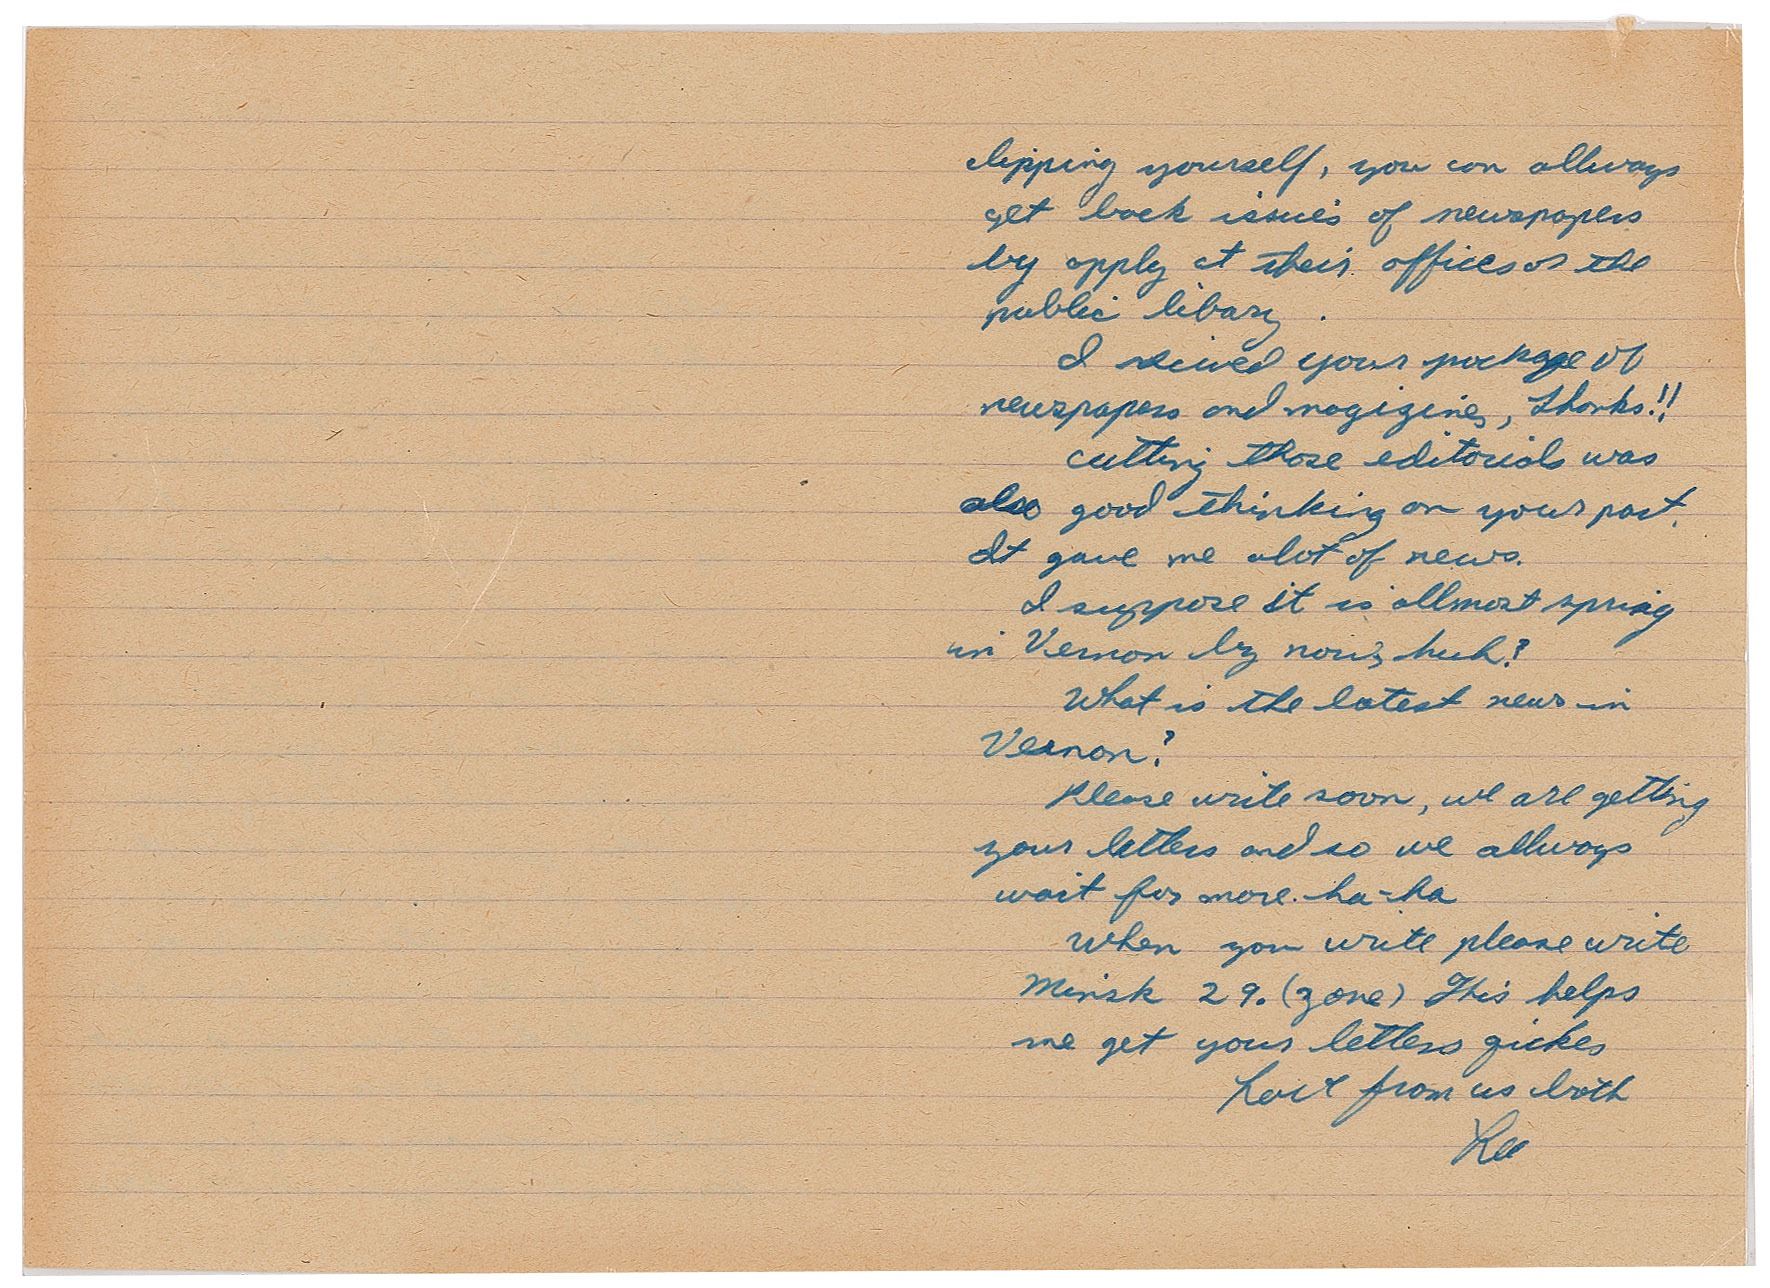 clipping yourself, you can allways
get back issue's of newspapers
by apply at their offices or the
public libary.
I reived your package of
newspapers and magizines, thanks!!
cutting those editorials was
also good thinking on your part.
It gave me alot of news.
I suppose it is allmost spring
in Vernon by now, huh?
What is the latest news in
Vernon?
Please write soon, we are getting
your letters and so we allways
wait for more. ha-ha
When you write please write
Minsk 29. (zone) This helps
me get your letters qicker
Love from us both
Lee